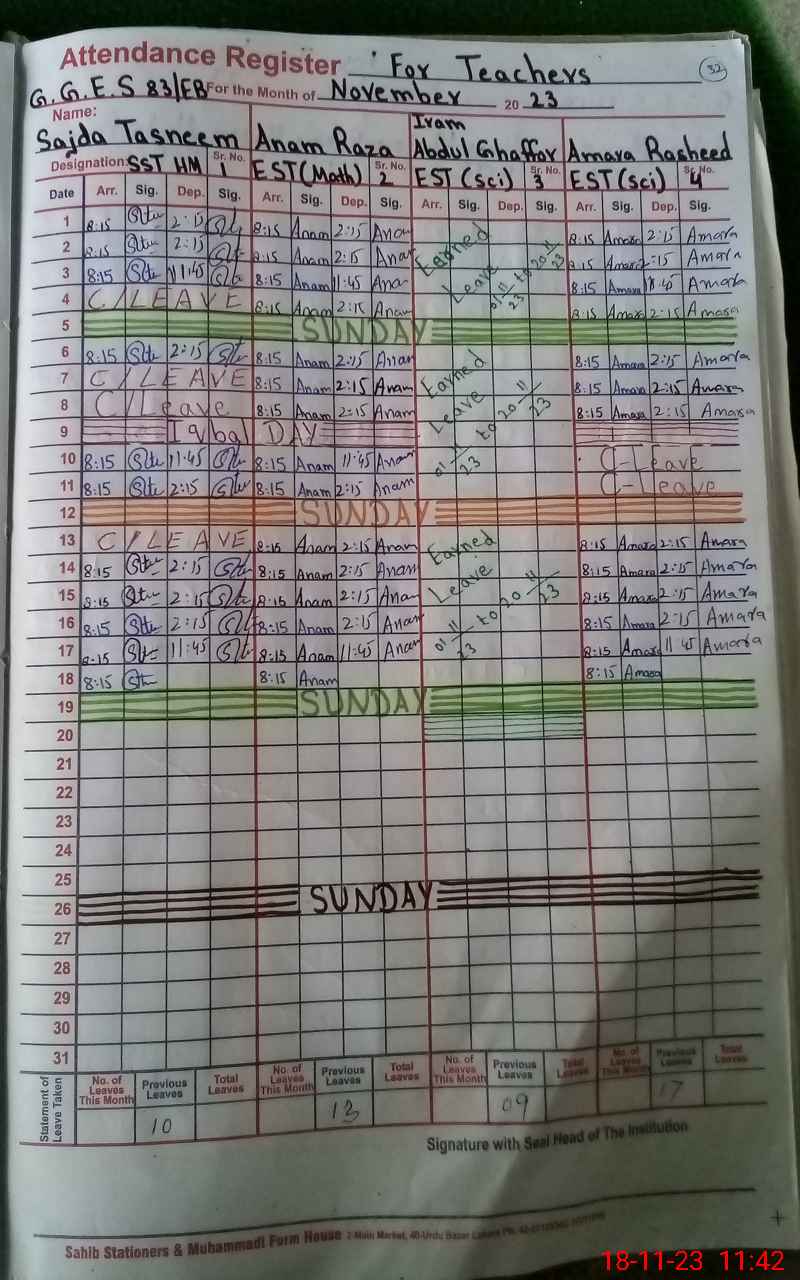 Attendance Register For Teachers 32
G.G.E.S 83/EB For the Month of November 20 23
Name:
Sajda Tasneem Anam Raza Iram Abdul Ghaffar Amara Rasheed
Designation: SST HM Sr. No. 1 EST (Math) Sr. No. 2 EST (Sci) Sr. No. 3 EST (Sci) Sr. No. 4
Date Arr. Sig. Dep. Sig. Arr. Sig. Dep. Sig. Arr. Sig. Dep. Sig. Arr. Sig. Dep. Sig.
1 8:15 2:15 8:15 Anam 2:15 Anam Earned Leave 01 11/23 to 20 11/23 8:15 Amara 2:15 Amara
2 8:15 2:15 8:15 Anam 2:15 Anam 8:15 Amara 2:15 Amara
3 8:15 11:45 8:15 Anam 11:45 Anam 8:15 Amara 11:45 Amara
4 C/LEAVE 8:15 Anam 2:15 Anam 8:15 Amara 2:15 Amara
5 SUNDAY
6 8:15 2:15 8:15 Anam 2:15 Anam Earned Leave 01 11/23 to 20 11/23 8:15 Amara 2:15 Amara
7 C/LEAVE 8:15 Anam 2:15 Anam 8:15 Amara 2:15 Amara
8 C/Leave 8:15 Anam 2:15 Anam 8:15 Amara 2:15 Amara
9 Iqbal DAY
10 8:15 11:45 8:15 Anam 11:45 Anam C-Leave
11 8:15 2:15 8:15 Anam 2:15 Anam C-Leave
12 SUNDAY
13 C/LEAVE 8:15 Anam 2:15 Anam Earned Leave 01 11/23 to 20 11/23 8:15 Amara 2:15 Amara
14 8:15 2:15 8:15 Anam 2:15 Anam 8:15 Amara 2:15 Amara
15 8:15 2:15 8:15 Anam 2:15 Anam 8:15 Amara 2:15 Amara
16 8:15 2:15 8:15 Anam 2:15 Anam 8:15 Amara 2:15 Amara
17 8:15 11:45 8:15 Anam 11:45 Anam 8:15 Amara 11 45 Amara
18 8:15 8:15 Anam 8:15 Amara
19 SUNDAY
20
21
22
23
24
25
26 SUNDAY
27
28
29
30
31
Statement of Leave Taken No. of Leaves This Month Previous Leaves Total Leaves No. of Leaves This Month Previous Leaves Total Leaves No. of Leaves This Month Previous Leaves Total Leaves No. of Leaves This Month Previous Leaves Total Leaves
10 13 09 17
Signature with Seal Head of The Institution
Sahib Stationers & Muhammadi Form House 2-Main Market, 40-Urdu Bazar Lahore Ph:
18-11-23 11:42